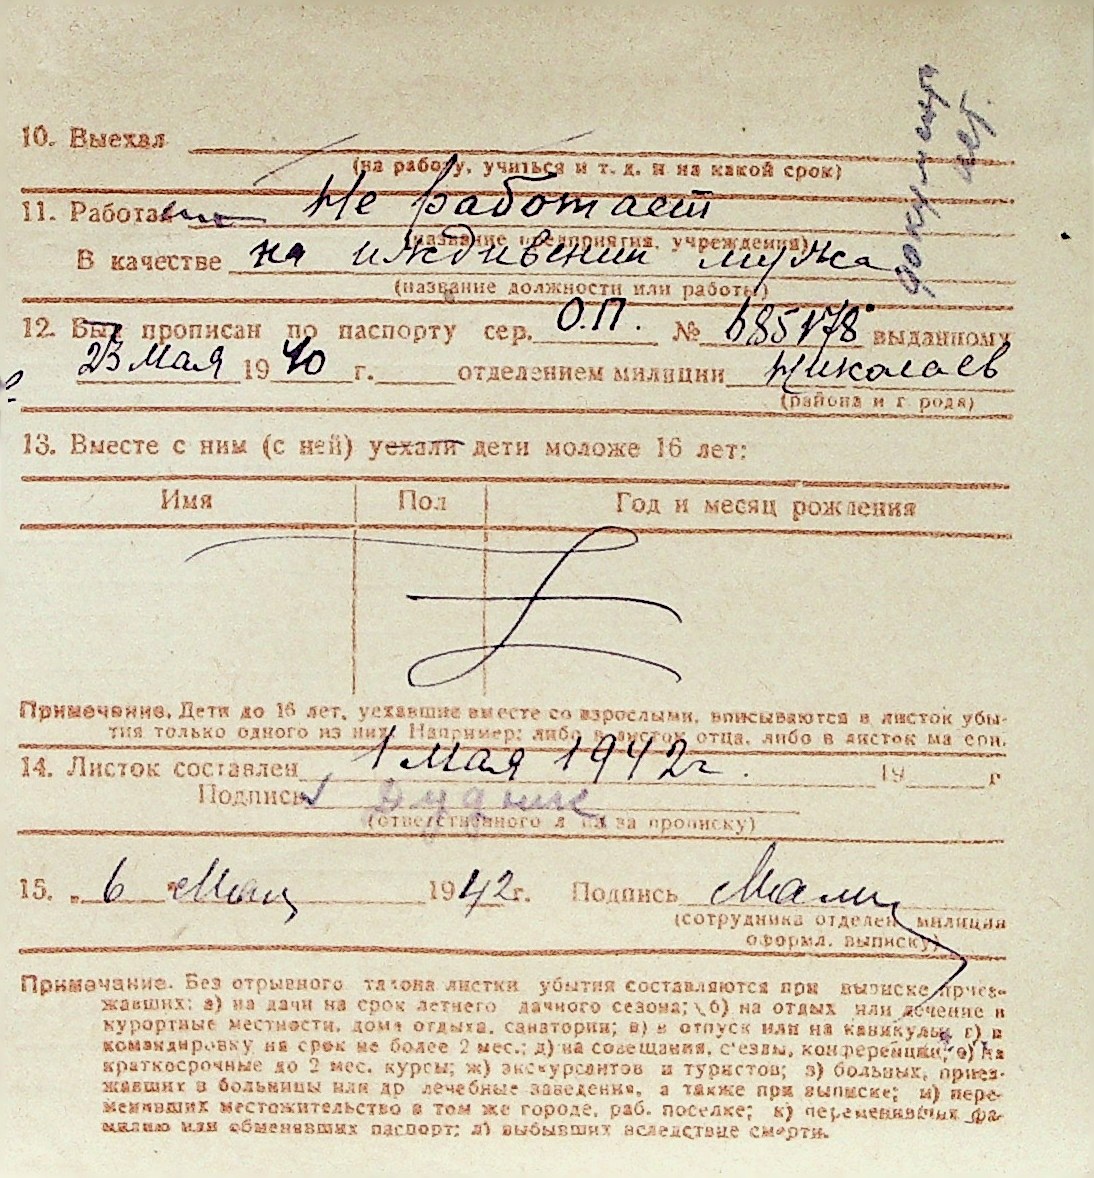 документ
нет.
10. Выехал
(на работу, учиться и т. д. и на какой срок)
11. Работа Не работает
(название предприятия, учреждения)
В качестве на иждивении мужа
(название должности или работы)
12. Был прописан по паспорту сер. О.П. № 685178 выданному
23 Мая 1940 г. отделением милиции Николаев
(района и города)
13. Вместе с ним (с ней) уехали дети моложе 16 лет:
Имя Пол Год и месяц рождения
Примечание. Дети до 16 лет, уехавшие вместе со взрослыми, вписываются в листок убы-
тия только одного из них. Например: либо в листок отца, либо в листок матери.
14. Листок составлен 1 мая 1942 г. 19 г
Подпись Дудник
(ответственного лица за прописку)
15. „ 6 " Мая 1942 г. Подпись
(сотрудника отделен. милиции
оформл. выписку)
Примечание. Без отрывного талона листки убытия составляются при выписке приез-
жавших: а) на дачи на срок летнего дачного сезона; б) на отдых или лечение в
курортные местности, дома отдыха, санатории; в) в отпуск или на каникулы; г) в
командировку на срок не более 2 мес.; д) на совещания, с'езды, конференции; е) на
краткосрочные до 2 мес. курсы; ж) экскурсантов и туристов; з) больных, приез-
жавших в больницы или др лечебные заведения, а также при выписке; и) пере-
менивших местожительство в том же городе, раб. поселке; к) переменивших фа-
милию или обменявших паспорт; л) выбывших вследствие смерти.